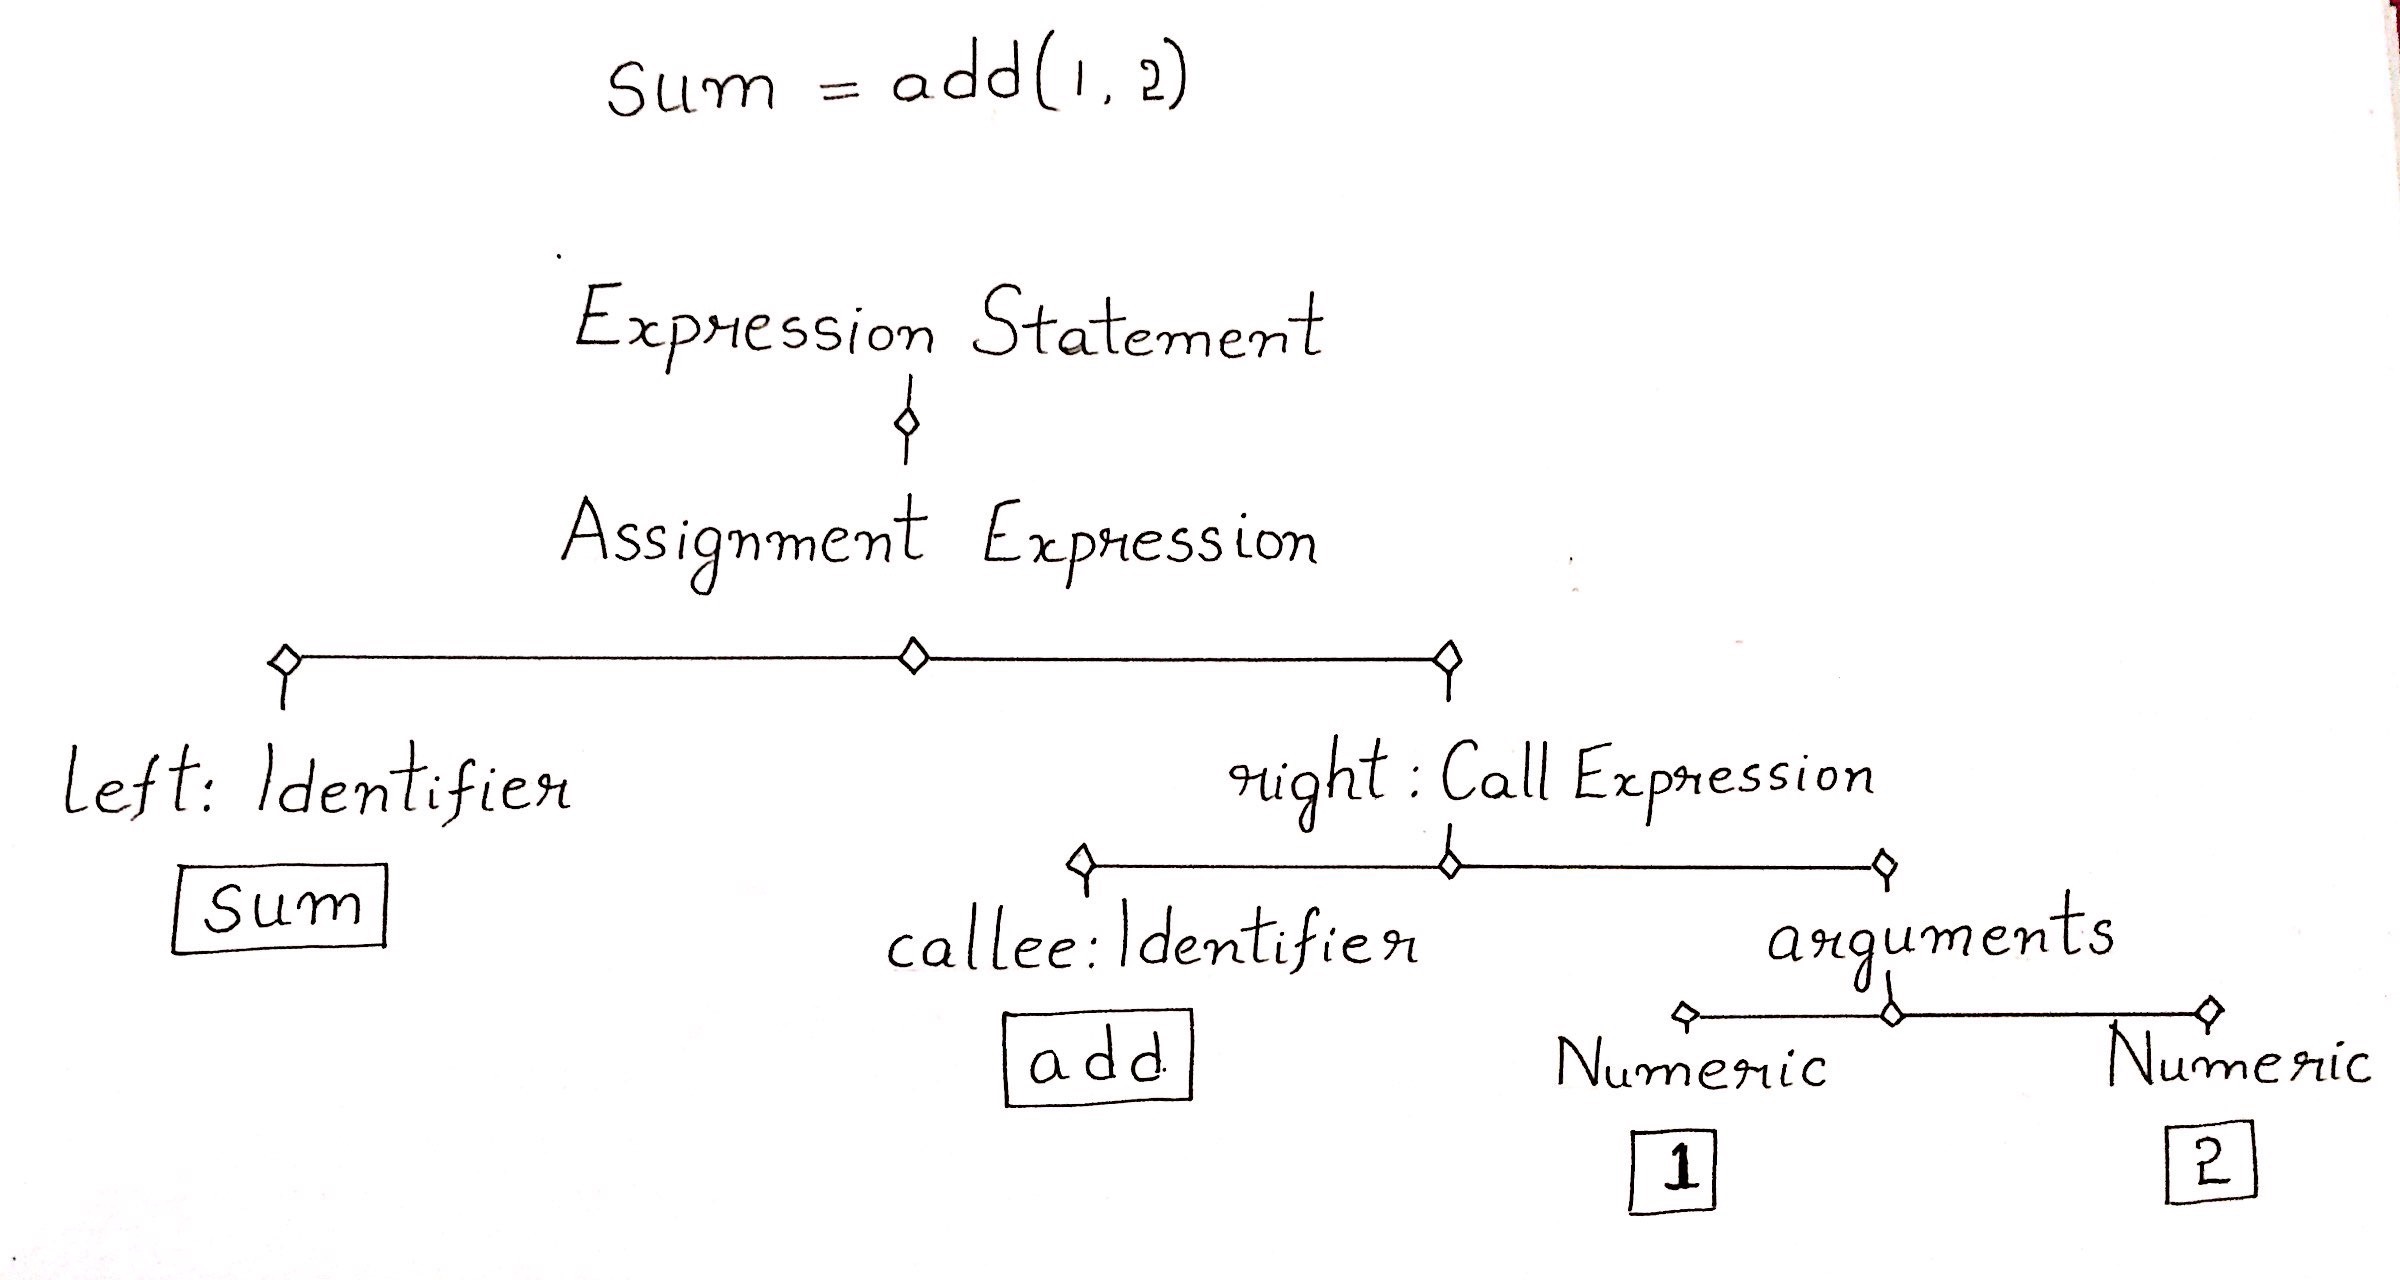 sum = add(1, 2)
Expression Statement
Assignment Expression
left: Identifier
right: Call Expression
sum
callee: Identifier
arguments
add
Numeric
Numeric
1
2